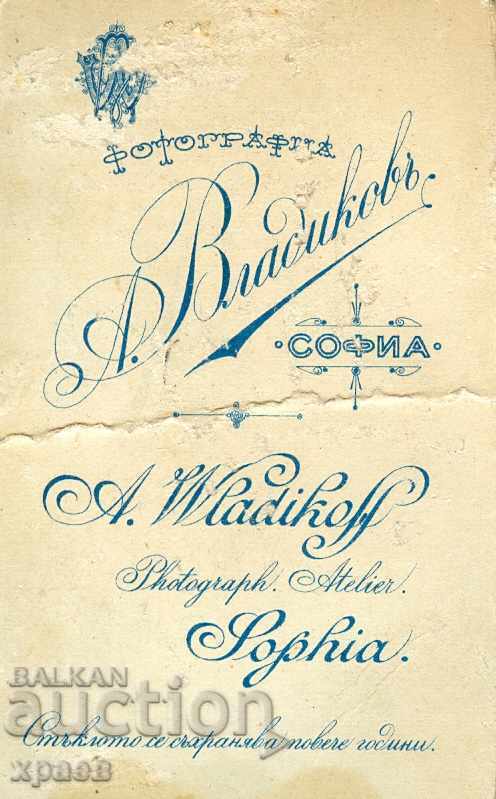 фотография
А. Владиковъ.
·СОФИА·
A. Wladikoff
Photograph. Atelier.
Sophia.
BALKAN
auction
Стъклото се съхранява повече години.
храсв